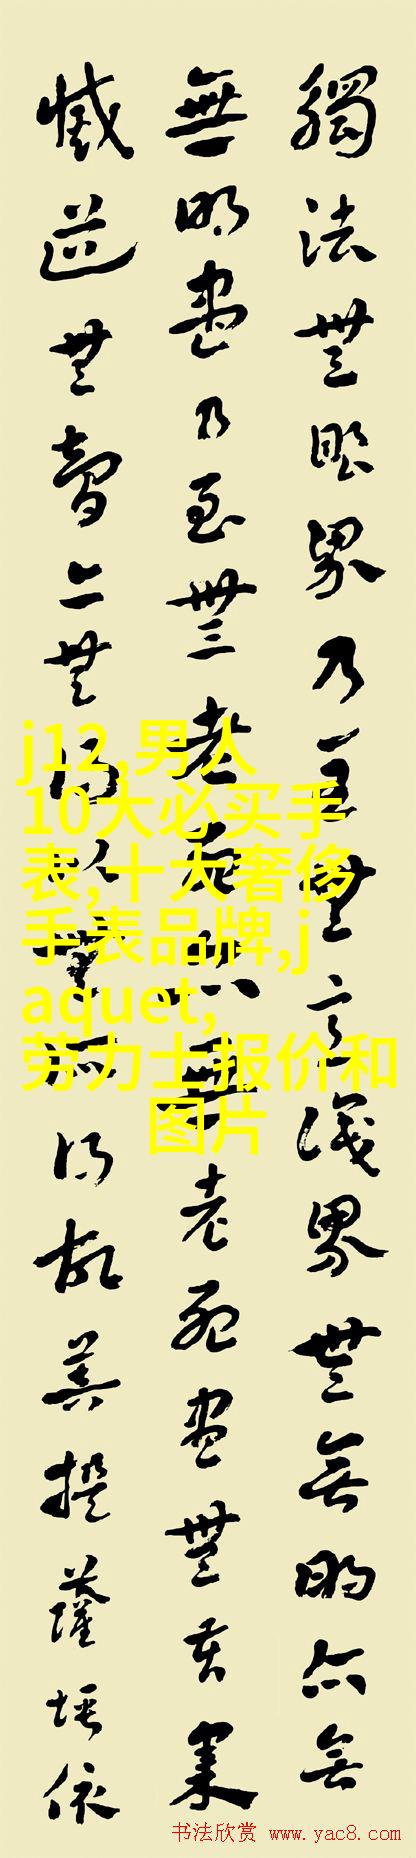 觸法無眼界乃至無意識界無無明亦無
無明盡乃至無老死亦無老死盡無苦集
滅道無智亦無得以無所得故菩提薩埵依
j12,男人
10大必买手
表,十大奢侈
手表品牌,j
aquet,
劳力士报价和
图片
书法欣赏 www.yac8.com